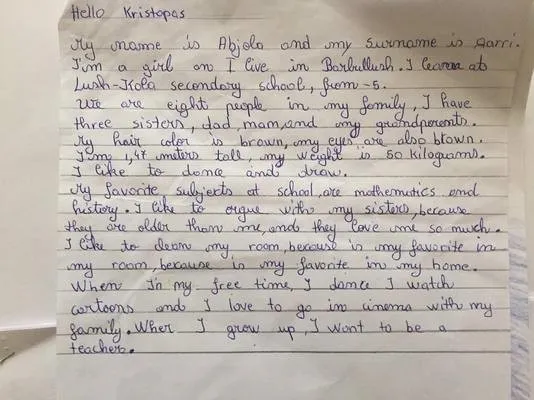 Hello Kristopas
My name is Abjola and my surname is Harri.
I'm a girl an I live in Barbullush. I learn at
Lush-Kola secondary school, from -5.
We are eight people in my family, I have
three sisters, dad, mam, and my grandparents.
My hair color is brown, my eyes are also brown.
I'm 1,47 meters tall, my weight is 50 kilograms.
I like to dance and draw.
My favorite subjects at school, are mathematics and
history. I like to argue with my sisters, because
they are older than me, and they love me so much.
I like to clean my room, because is my favorite in
my room, because in my favorite in my home.
When In my free time, I dance I watch
cartoons and I love to go in cinema with my
family. When I grow up, I want to be a
teacher.